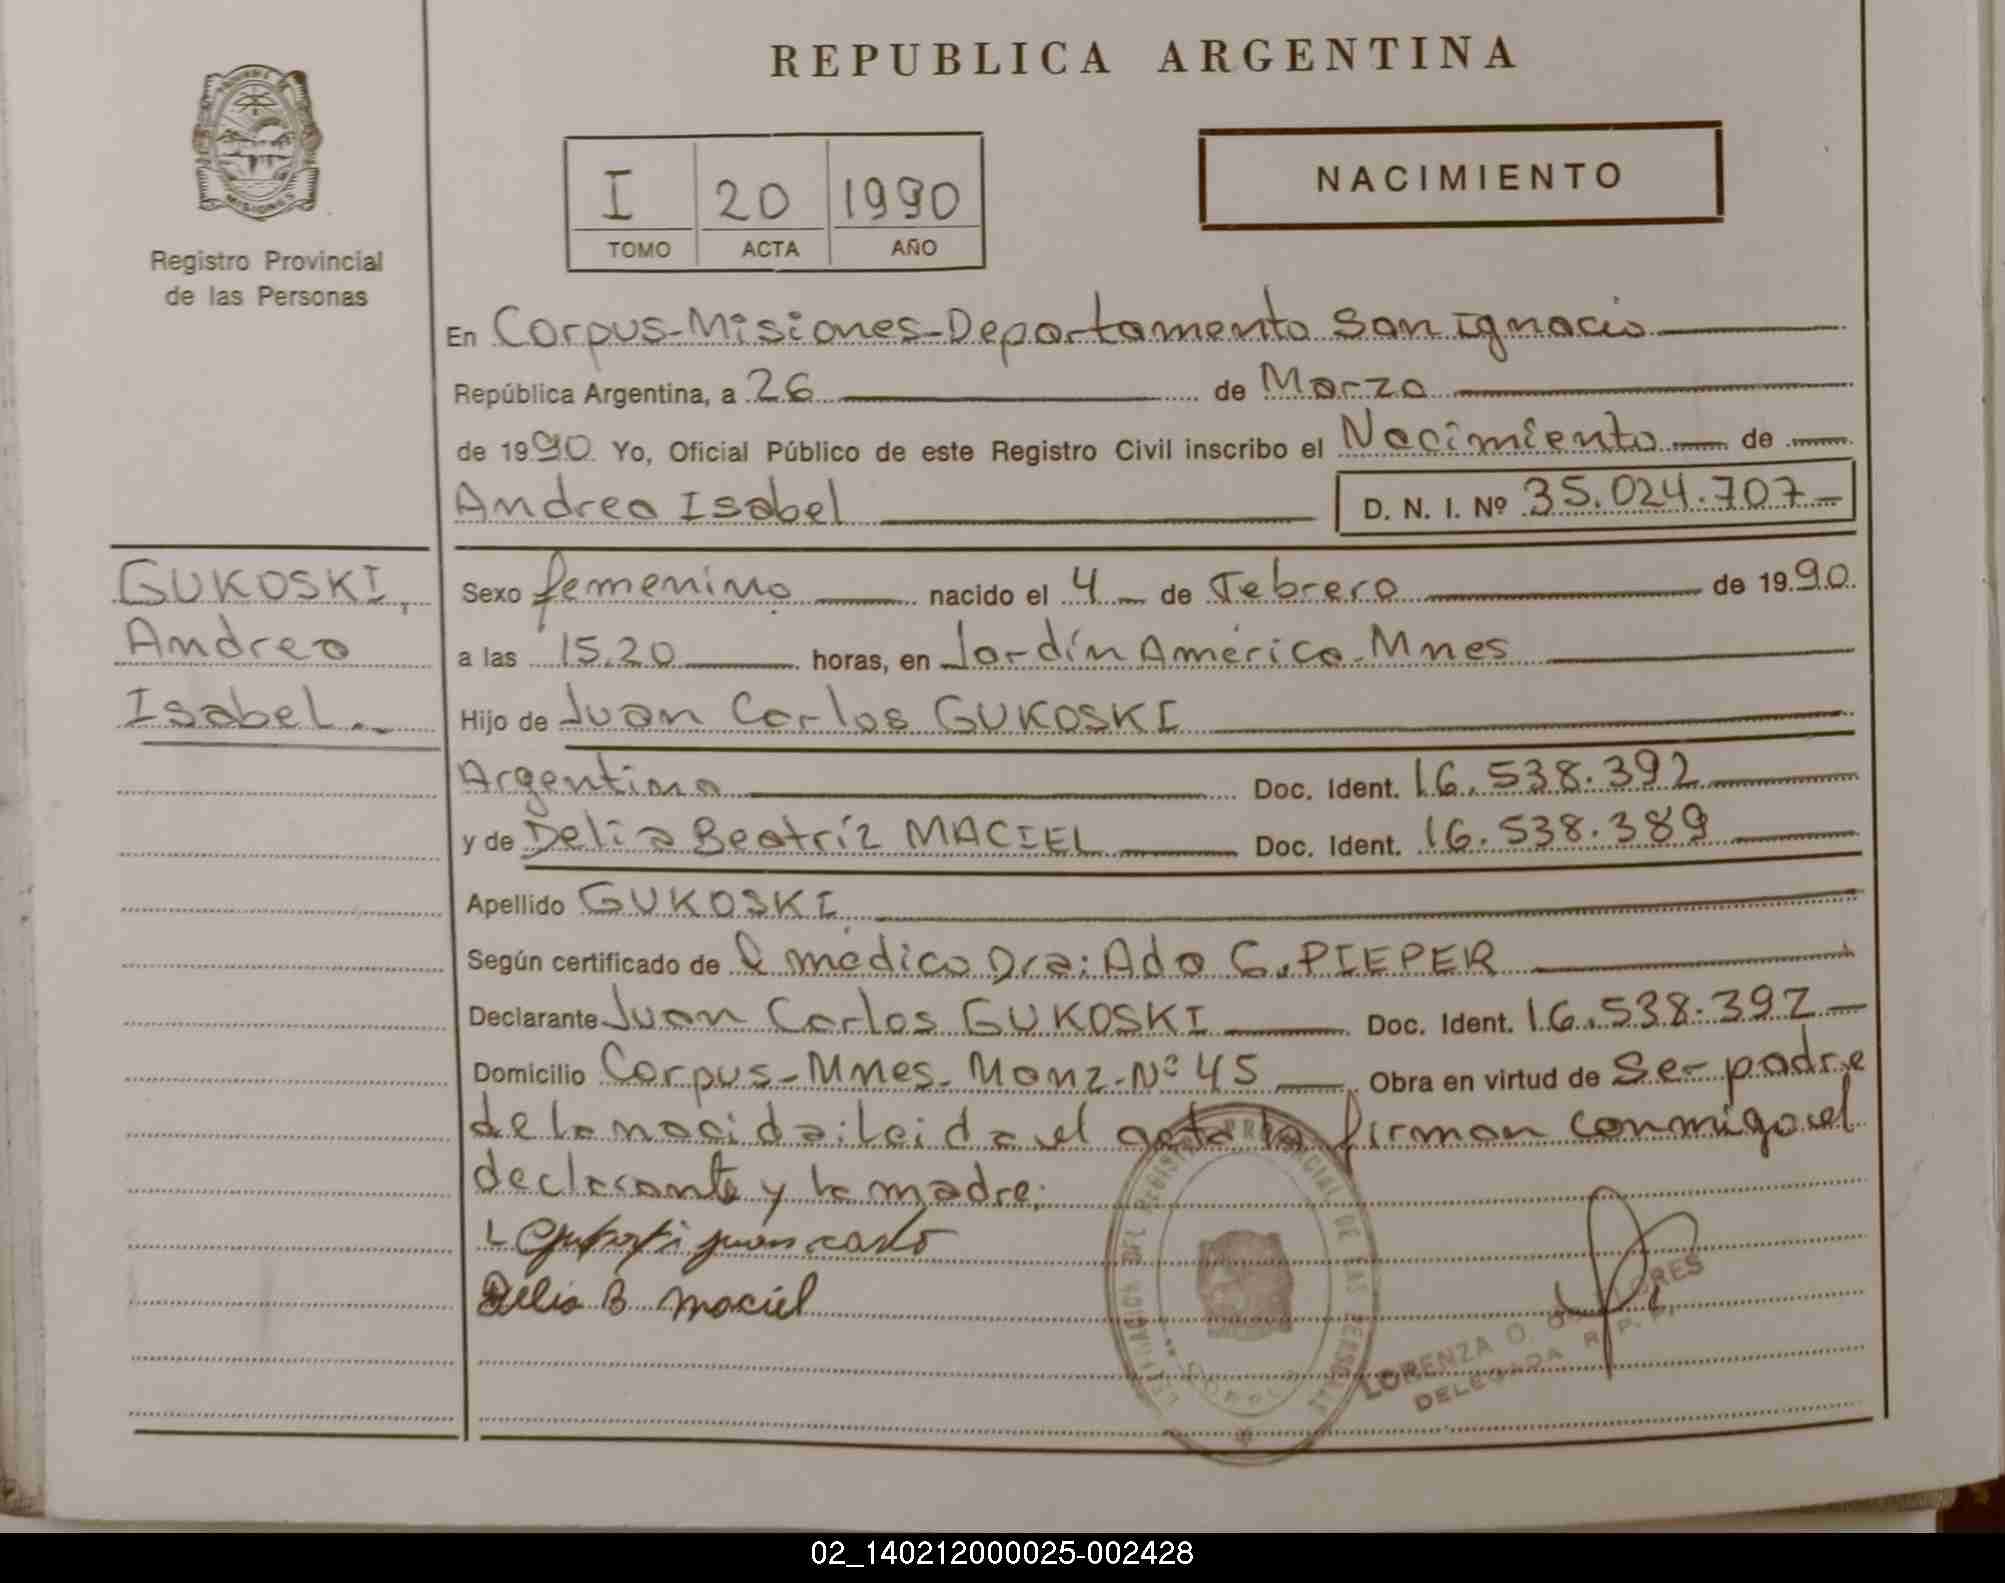 REPUBLICA ARGENTINA
PROVINCIA DE
MISIONES
Registro Provincial
de las Personas
I 20 1990
TOMO ACTA AÑO
NACIMIENTO
En Corpus-Misiones-Departamento San Ignacio
República Argentina, a 26 de Marzo
de 1990 Yo, Oficial Público de este Registro Civil inscribo el Nacimiento de
Andrea Isabel D. N. I. Nº 35.024.707
GUKOSKI,
Andrea
Isabel.
Sexo femenino nacido el 4 de Febrero de 1990
a las 15.20 horas, en Jardín América-Mnes
Hijo de Juan Carlos GUKOSKI
Argentino Doc. Ident. 16.538.392
y de Delia Beatríz MACIEL Doc. Ident. 16.538.389
Apellido GUKOSKI
Según certificado de médico Dra: Ada C. PIEPER
Declarante Juan Carlos GUKOSKI Doc. Ident. 16.538.392
Domicilio Corpus-Mnes-Manz-Nº 45 Obra en virtud de Ser padre
de la nacida: leida el acta la firman conmigo el
declarante y la madre.
Gukoski juan carlo
Delia B maciel
DEL REGISTRO PROVINCIAL DE LAS PERSONAS
CORPUS
LORENZA O.
DELEGADA R. P. P.
02_140212000025-002428